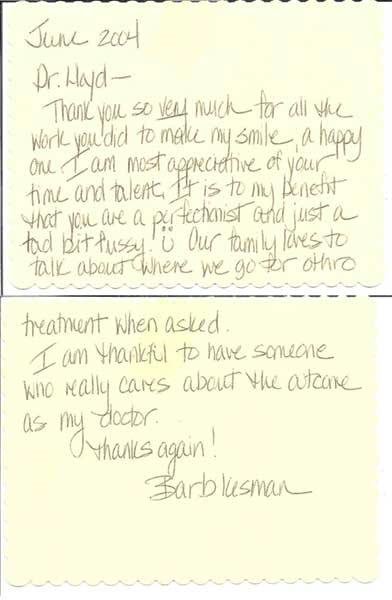 June 2004
Dr. Lloyd—
Thank you so very much for all the
work you did to make my smile, a happy
one. I am most appreciative of your
time and talent. It is to my benefit
that you are a perfectionist and just a
tad bit fussy! Our family loves to
talk about where we go for othro
treatment when asked.
I am thankful to have someone
who really cares about the outcome
as my doctor.
Thanks again!
Barb